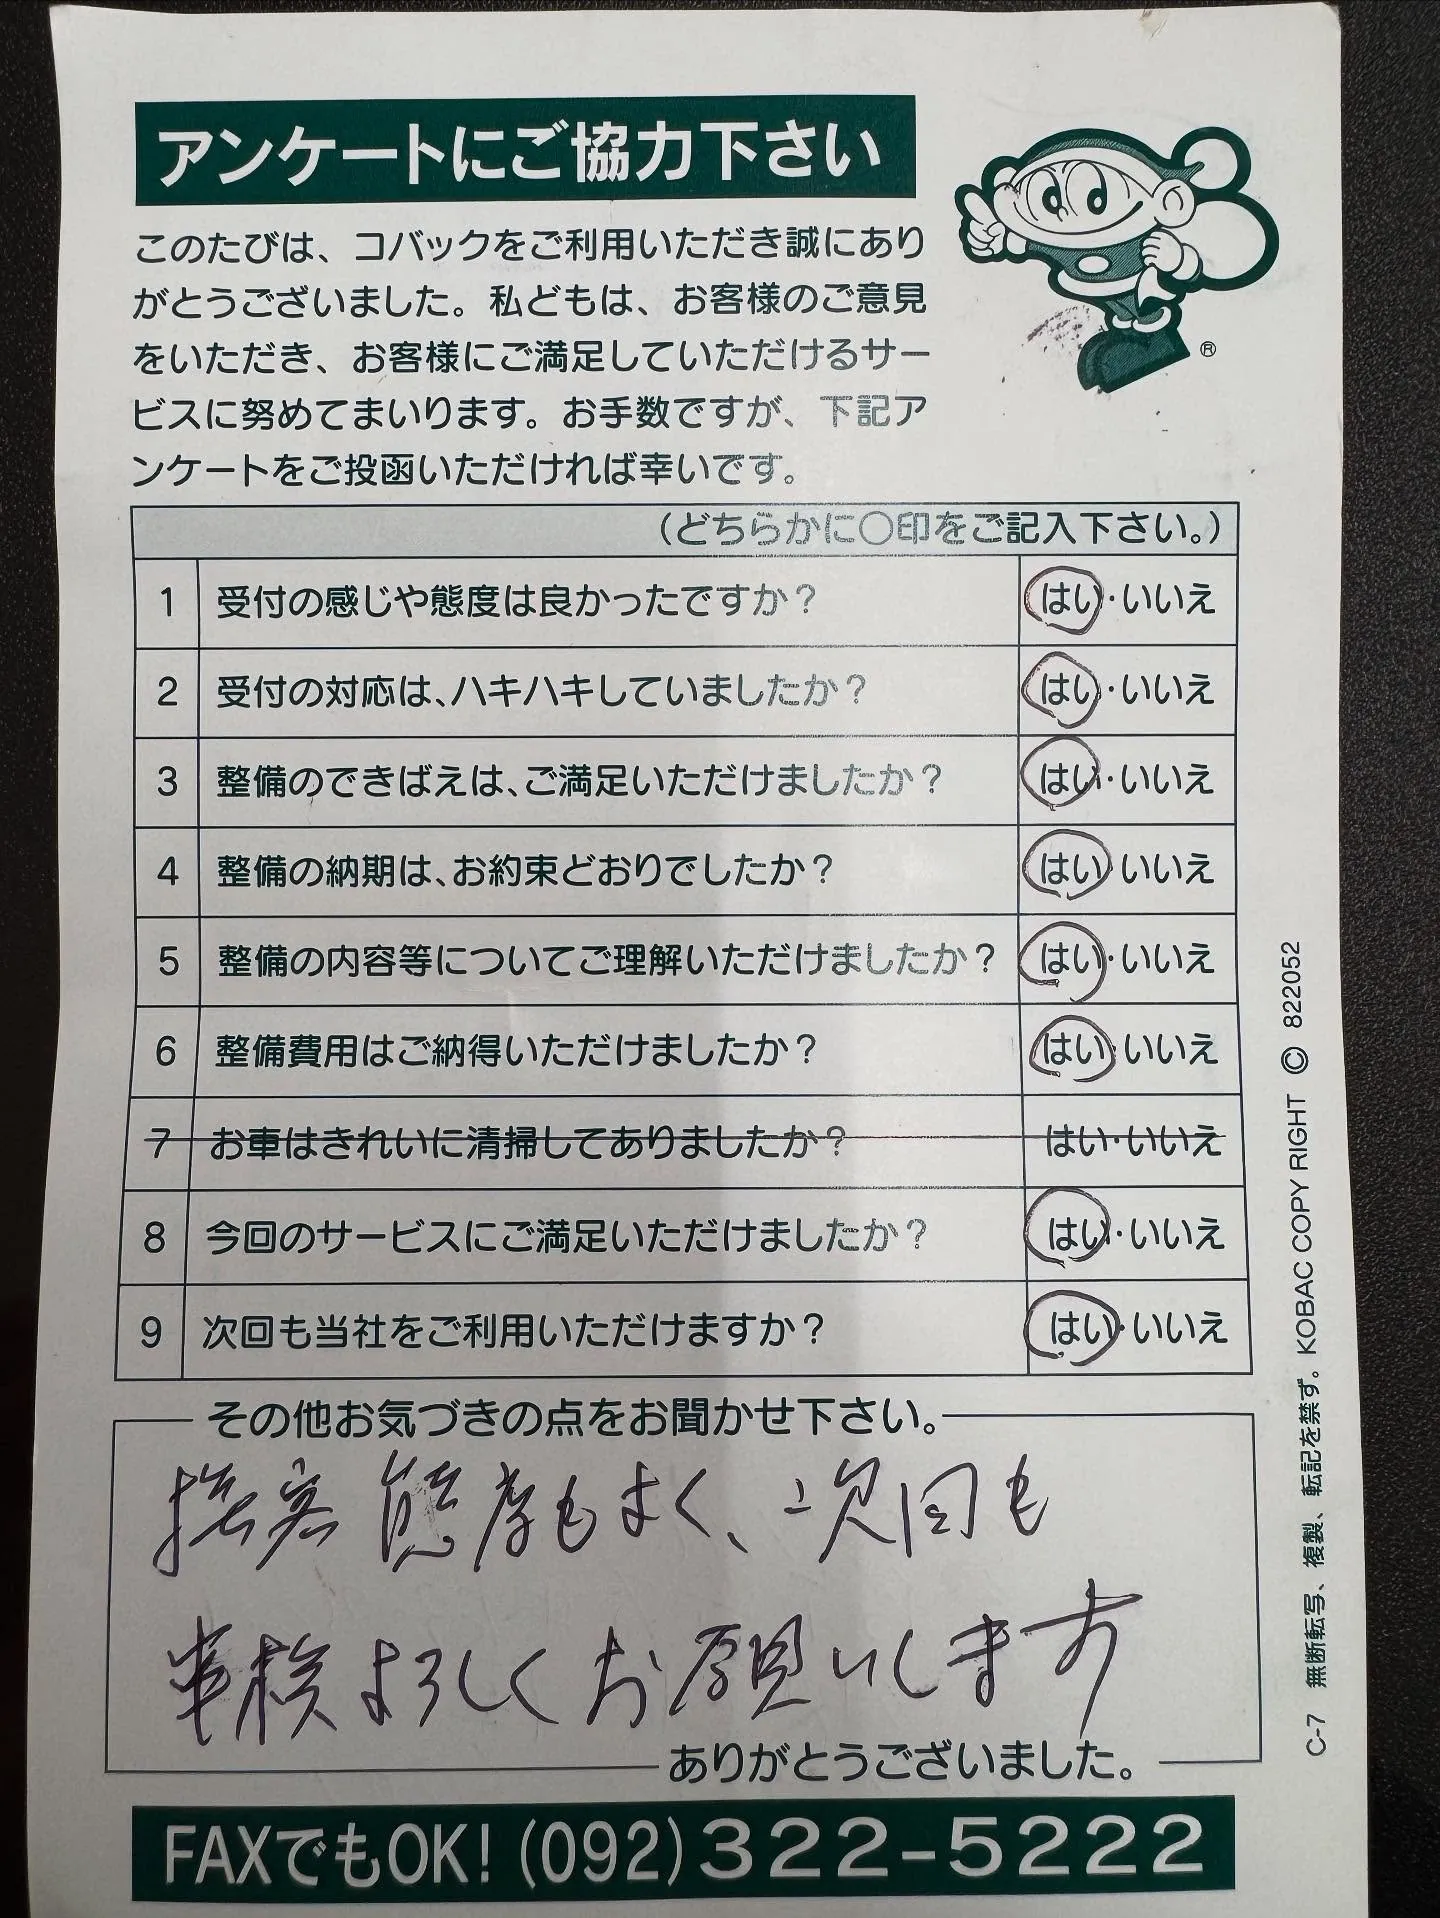 アンケートにご協力下さい
このたびは、コバックをご利用いただき誠にあり
がとうございました。私どもは、お客様のご意見
をいただき、お客様にご満足していただけるサー
ビスに努めてまいります。お手数ですが、下記ア
ンケートをご投函いただければ幸いです。
®
(どちらかに〇印をご記入下さい。)
1 受付の感じや態度は良かったですか? はい・いいえ
2 受付の対応は、ハキハキしていましたか? はい・いいえ
3 整備のできばえは、ご満足いただけましたか? はい・いいえ
4 整備の納期は、お約束どおりでしたか? はい・いいえ
5 整備の内容等についてご理解いただけましたか? はい・いいえ
6 整備費用はご納得いただけましたか? はい・いいえ
7 お車はきれいに清掃してありましたか? はい・いいえ
8 今回のサービスにご満足いただけましたか? はい・いいえ
9 次回も当社をご利用いただけますか? はい・いいえ
その他お気づきの点をお聞かせ下さい。
接客態度もよく、次回も
車検よろしくお願いします
ありがとうございました。
FAXでもOK!(092)322-5222
C-7 無断転写、複製、転記を禁ず。KOBAC COPY RIGHT © 822052